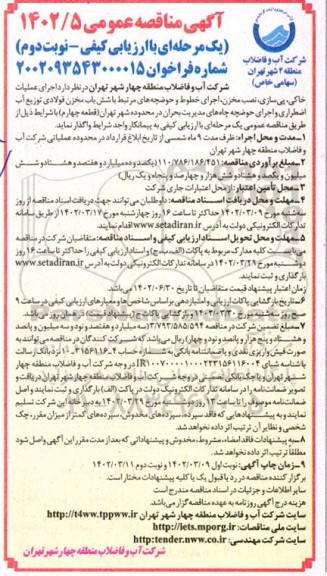 آگهی مناقصه عمومی ۱۴۰۲/۵
(یک مرحله‌ای با ارزیابی کیفی - نوبت دوم)
شماره فراخوان ۲۰۰۲۰۹۳۵۴۳۰۰۰۰۱۵
شرکت آب و فاضلاب
منطقه ۴ شهر تهران
(سهامی خاص)
شرکت آب و فاضلاب منطقه چهار شهر تهران در نظر دارد اجرای عملیات
خاکی، پی‌سازی، نصب مخزن، اجرای خطوط و حوضچه‌های مرتبط با شش باب مخزن فولادی توزیع آب
اضطراری و اجرای حوضچه چاه‌های مدیریت بحران در محدوده شهر تهران (قطعه چهارم) با شرایط ذیل از
طریق مناقصه عمومی یک مرحله‌ای با ارزیابی کیفی به پیمانکار واجد شرایط واگذار نماید.
۱- مدت و محل اجرا: ظرف مدت ۹ ماه شمسی از تاریخ ابلاغ قرارداد در محدوده عملیاتی شرکت آب
و فاضلاب منطقه چهار شهر تهران
۲- مبلغ برآوردی مناقصه: ۱۱۰/۷۸۶/۱۸۶/۴۵۱ (یکصد و ده میلیارد و هفتصد و هشتاد و شش
میلیون و یکصد و هشتاد و شش هزار و چهارصد و پنجاه و یک ریال)
۳- محل تأمین اعتبار: از محل اعتبارات جاری شرکت
۴- مهلت و محل دریافت اسناد مناقصه: داوطلبان می‌توانند جهت دریافت اسناد مناقصه از روز
سه‌شنبه مورخ ۱۴۰۲/۰۳/۰۹ حداکثر تا ساعت ۱۶ روز چهارشنبه مورخ ۱۴۰۲/۰۳/۱۷ از طریق سامانه
تدارکات الکترونیکی دولت به آدرس www.setadiran.ir اقدام نمایند.
۵- مهلت و محل تحویل اسناد ارزیابی کیفی و اسناد مناقصه: متقاضیان شرکت در مناقصه
می‌بایست کلیه مدارک مربوط به پاکات (الف، ب، ج و ارزیابی کیفی) را حداکثر تا ساعت ۱۶ روز
دوشنبه مورخ ۱۴۰۲/۰۳/۲۹ در سامانه تدارکات الکترونیکی دولت به آدرس www.setadiran.ir
بارگذاری و ثبت نمایند.
زمان اعتبار پیشنهاد قیمت متقاضیان تا تاریخ ۱۴۰۲/۰۶/۳۰ می‌باشد.
۶- تاریخ بازگشایی پاکات ارزیابی و امتیازدهی براساس شاخص‌ها و معیارهای ارزیابی کیفی در ساعت ۹
صبح روز سه‌شنبه مورخ ۱۴۰۲/۰۳/۳۰ و بازگشایی پاکات ج (پیشنهاد قیمت) در همان روز می‌باشد.
۷- مبلغ تضمین شرکت در مناقصه ۳/۷۹۳/۵۸۵/۵۹۴ (سه میلیارد و هفتصد و نود و سه میلیون و پانصد
و هشتاد و پنج هزار و پانصد و نود و چهار) ریال می‌باشد که شرکت‌کنندگان در مناقصه می‌توانند به
صورت فیش واریزی نقدی و یا ضمانتنامه بانکی به شماره حساب
در وجه شرکت آب و فاضلاب منطقه چهار
شهر تهران
۸- به پیشنهادات فاقد امضاء، مشروط، مخدوش و پیشنهاداتی که بعد از مدت مقرر این آگهی واصل شود
مطلقاً ترتیب اثر داده نخواهد شد.
۹- زمان چاپ آگهی: نوبت اول ۱۴۰۲/۰۳/۰۹ و نوبت دوم ۱۴۰۲/۰۳/۱۱
برگزار کننده مناقصه در رد یا قبول یک یا کلیه پیشنهادات مختار است.
سایر اطلاعات و جزئیات در اسناد مناقصه مندرج است
هزینه درج آگهی روزنامه به عهده مناقصه‌گزار می‌باشد.
سایت شرکت آب و فاضلاب منطقه چهار شهر تهران http://t4ww.tppww.ir
سایت ملی مناقصات: http://iets.mporg.ir
سایت شرکت مهندسی: http:tender.nww.co.ir
شرکت آب و فاضلاب منطقه چهار شهر تهران